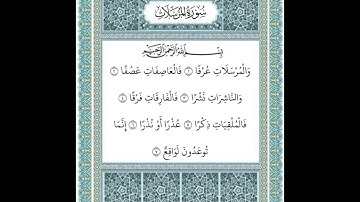 سُورَةُ الْمُرْسَلَاتِ
بِسْمِ اللَّهِ الرَّحْمَٰنِ الرَّحِيمِ
وَالْمُرْسَلَاتِ عُرْفًا ١ فَالْعَاصِفَاتِ عَصْفًا ٢
وَالنَّاشِرَاتِ نَشْرًا ٣ فَالْفَارِقَاتِ فَرْقًا ٤
فَالْمُلْقِيَاتِ ذِكْرًا ٥ عُذْرًا أَوْ نُذْرًا ٦ إِنَّمَا
تُوعَدُونَ لَوَاقِعٌ ٧